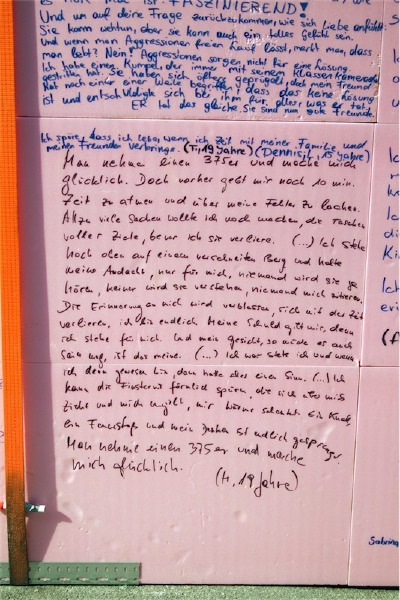 FASZINIEREND!
Und um auf deine Frage zurückzukommen, wie sich Liebe anfühlt:
Sie kann wehtun, aber sie kann auch ein tolles Gefühl sein.
Und wenn man Aggressionen freien lauf lässt, merkt man, dass
man lebt? Nein! Aggressionen sorgen nicht für eine Lösung
Ich habe einen Kumpel, der immer mit seinem Klassenkameraden
gestritten hat. Sie haben sich öfters geprügelt, doch mein Freund
Hat nach einer Weile begriffen, dass das keine Lösung
ist und entschuldigte sich bei ihm für alles, was er tat.
ER tat das gleiche. Sie sind nun gute Freunde.
Ich spüre, dass ich lebe, wenn ich Zeit mit meiner Familie und
meinen Freunden verbringe. (T, 19 Jahre) (Dennis, 15 Jahre)
Man nehme einen 375er und mache mich
glücklich. Doch vorher gebt mir noch 10 min.
Zeit zu atmen und über meine Fehler zu lachen.
Allzu viele Sachen wollte ich noch machen, die Taschen
voller Ziele, bevor ich sie verliere. (...) Ich stehe
hoch oben auf einem verschneiten Berg und halte
meine Andacht, nur für mich, niemand wird sie je
hören, keiner wird sie verstehen, niemand mich zitieren.
Die Erinnerung an mich wird verblassen, sich mit der Zeit
verlieren, ich bin endlich Meine Schuld gilt mir, denn
ich stehe für mich. Und mein Gesicht, so müde es auch
sein mag, ist das meine. (...) Ich war stets ich und wenn
ich denn gewesen bin, dann hatte alles einen Sinn. (...) Ich
kann die Finsternis förmlich spüren, die sich über mich
zieht und mich umgibt, mir Wärme schenkt. Ein Knall,
ein Feuerstoß und mein Denken ist endlich gesprengt.
Man nehme einen 375er und mache
mich glücklich.
(M, 19 Jahre)
Ich
Sabrina